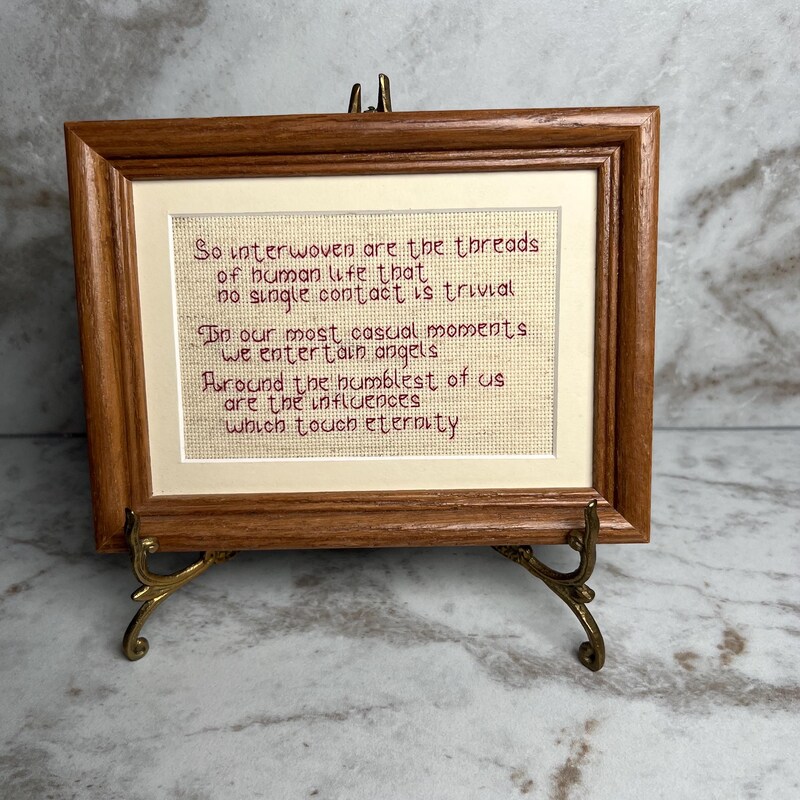 So interwoven are the threads
of human life that
no single contact is trivial
In our most casual moments
we entertain angels
Around the humblest of us
are the influences
which touch eternity